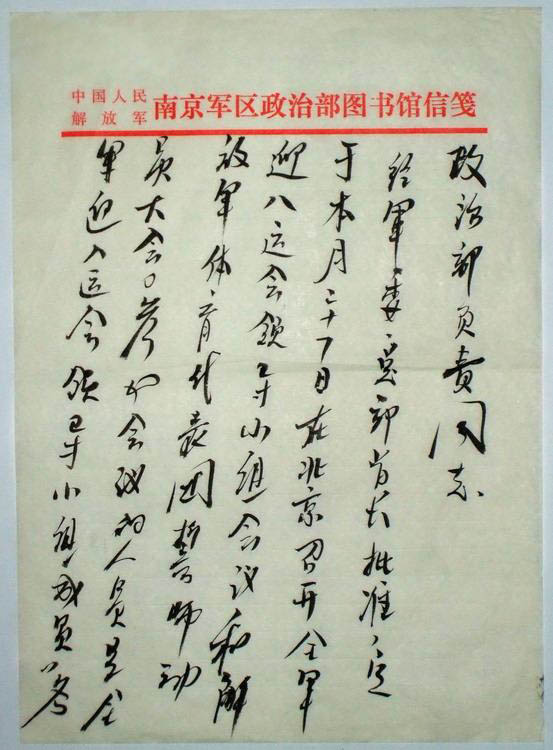 中国人民
解放军
南京军区政治部图书馆信笺
政治部负责同志
经军委、总部首长批准、定
于本月二十日在北京召开全军
迎八运会领导小组会议和解
放军体育代表团誓师动
员大会。参加会议的人员是全
军迎八运会领导小组成员、参